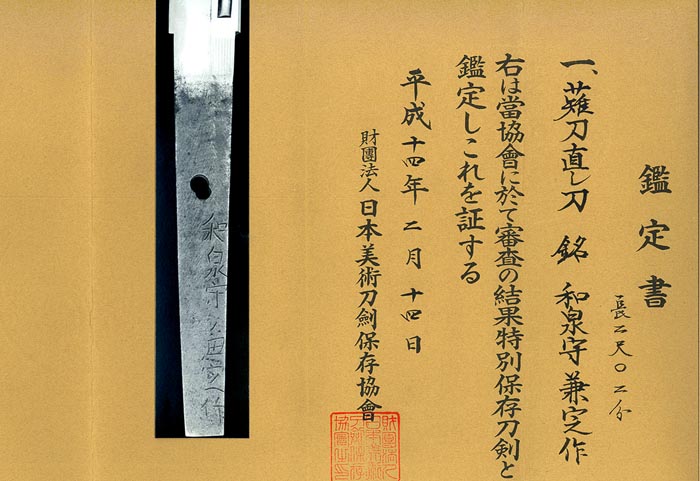 鑑定書
一、薙刀直し刀 銘 和泉守兼定作
長二尺〇二分
右は當協會に於て審査の結果特別保存刀剣と
鑑定しこれを証する
平成十四年二月十四日
財團法人 日本美術刀劍保存協會
和泉守兼定作